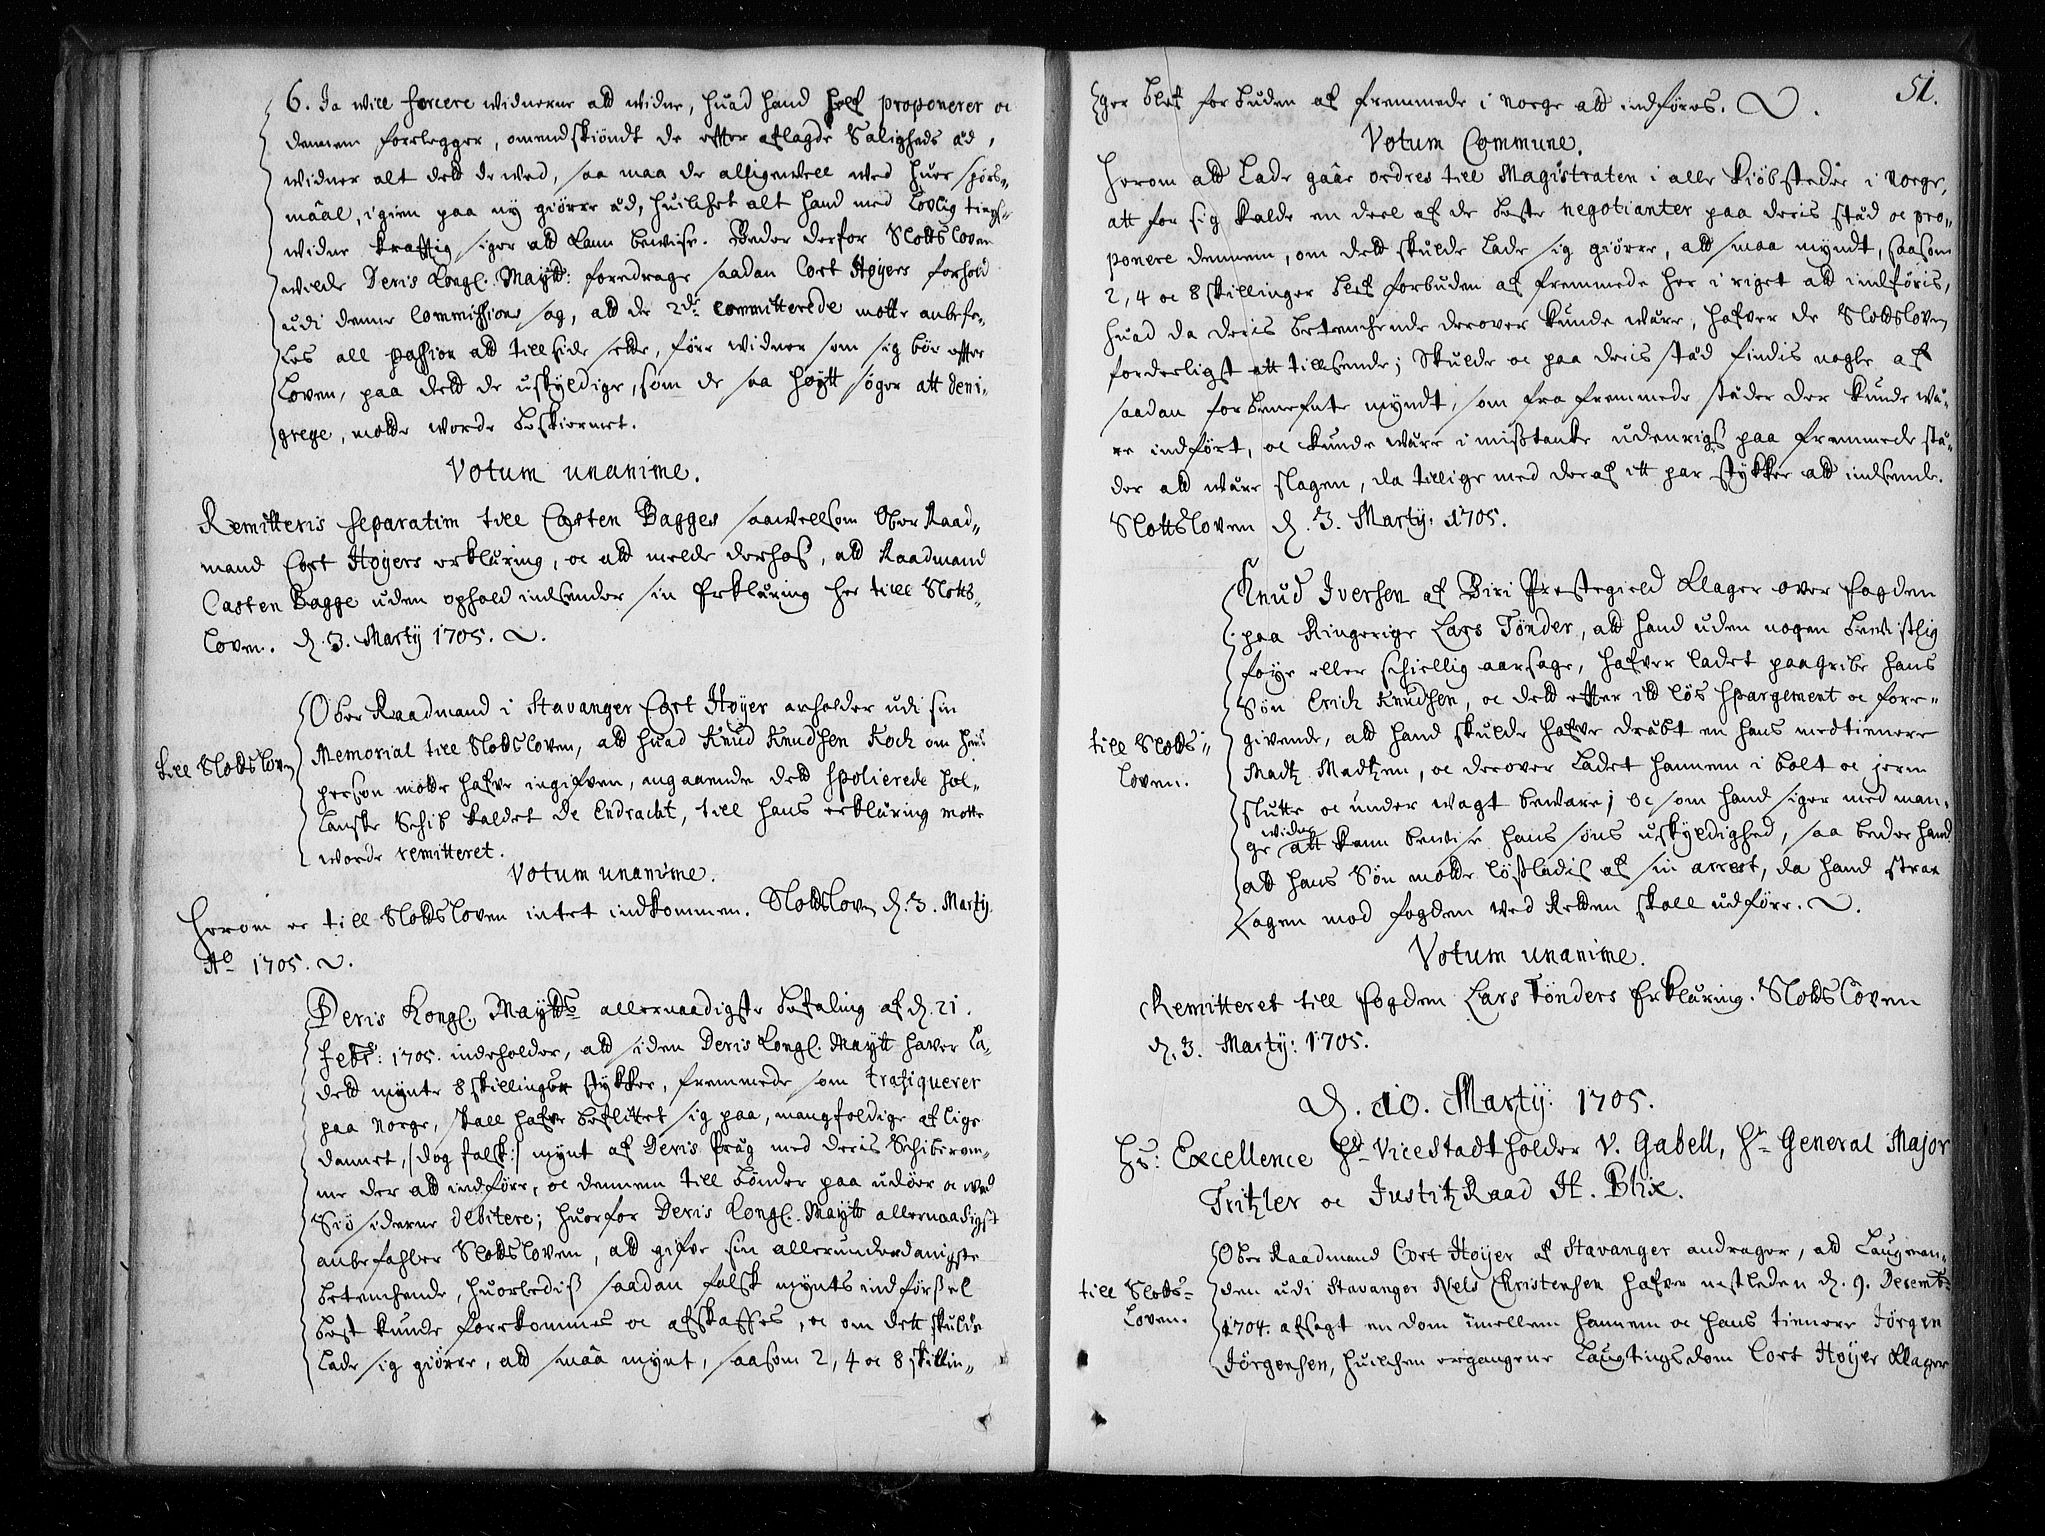 6. Ja will forcere widnerne att widne, huad hand self proponerer oc
dennem forelegger, omendskiöndt de effter aflagde Saligheds æd,
widner alt dett de wed, saa maa de alligewell wed huer spørs-
maal, igien paa ny giørre æd, huilchet alt hand med Lovlig tings-
widne krafftig siger att kann bewise. Beder derfor Slottsloven
wilde Deris Kongl. Maytt: foredrage saadan Cort Høyers forhold
udi denne Commissions sag, att de 2de committerede motte anbefa-
les all passion att till side sette, føre widner som sig bör effter
Loven, paa dett de uskyldige, som de saa høytt søger att deni-
grere, motte worde beskiermet.
Votum unanime.
Remitteris separatim till Casten Bagges saawellsom Ober Raad-
mand Cort Høyers erklæring, oc att melde derhos, att Raadmand
Casten Bagge uden ophold indsender sin Erklæring her till Slotts-
loven. d. 3. Martij 1705.
Ober Raadmand i Stavanger Cort Høyer anholder udi sin
Memorial till Slottsloven, att huad Knud Knudsen Koch om hans
till Slottsloven
person motte hafve ingifven, angaaende dett spolierede Hol-
landske Schib kaldet De Endracht, till hans erklæring motte
worde remitteret.
Votum unanime.
Herom er till Slottsloven intet indkommen. Slottsloven d. 3. Martij
Ao 1705.
Deris Kongl. Maytts allernaadigste befaling af d. 21.
Febr: 1705. indeholder, att siden Deris Kongl. Maytt haver La-
dett mynte 8 skillings stykker, fremmede som trafiquerer
paa Norge, skall hafve beflittet sig paa, mangfoldige af lige
dannet, /:dog falsk:/ mynt af Deris Præg med deris Schiberom-
me der att indføre, oc dennem till bønder paa udøer oc wed
Siø siderne debitere; huorfor Deris Kongl. Maytt allernaadigst
anbefahler Slottsloven, att gifve sin allerunderdanigste
betenchende, huorledis saadan falsk mynts indførsel
best kunde forekommes oc afskaffes, oc om dett skulde
lade sig giørre, att smaa mynt, saasom 2, 4 oc 8 skillin-
51.
ger blef forbuden af fremmede i Norge att indføres.
Votum Commune.
Herom att Lade gaae ordres till Magistraten i alle Kiöbstæder i Norge,
att for sig kalde en deel af de beste negotianter paa deris stæd oc pro-
ponere dennem, om dett skulde lade sig giørre, att smaa myndt, saasom
2, 4 oc 8 skillinger blef forbuden af fremmede her i riget att indføris,
huad da deris betenchende derover kunde være, hafver de Slottsloven
forderligst att tillsende; Skulde oc paa deris stæd findis nogle af
saadan forbenefnte myndt, som fra fremmede stæder der kunde væ-
re indført, oc kunde være i mistanke udenrigs paa fremmede stæ-
der att være slagen, da tillige med deraf itt par stykker att indsende.
Slottsloven d. 3. Martij: 1705.
Knud Iversen af Biri Prestegield klager over fogden
paa Ringerige Lars Tönder, att hand uden nogen bewislig
föye eller schiellig aarsage, hafver ladet paagribe hans
Søn Erich Knudsen, oc dett effter itt løs spargement oc fore-
till Slotts-
givende, att hand skulde hafve dræbt en hans medtienere
Loven.
Madtz Madtzen, oc derover ladet hannem i bolt oc jern
slutte oc under wagt beware; oc som hand siger med man-
widner
ge att kann bewise hans søns uskyldighed, saa beder hand
att hans Søn motte løsladis af sin arrest, da hand strax
sagen mod fogden ved Retten skall udføre.
Votum unanime.
Remitteret till fogden Lars Tönders Erklæring. Slottsloven
d. 3. Martij: 1705.
D. 10. Martij: 1705.
Hs: Excellence Hr Vice Stadtholder V. Gabell, Hr General Major
Tritzler oc Justitz Raad H. Blix.
Ober Raadmand Cort Høyer af Stavanger andrager, att Laugman-
till Slotts-
den udi Stavanger Niels Christensen hafver nestleden d. 9. Decembr
Loven.
1704. afsagt en dom imellem hannem oc hans tienere Jörgen
Jörgensen, huilchen ergangene Laugtings dom Cort Høyer klager